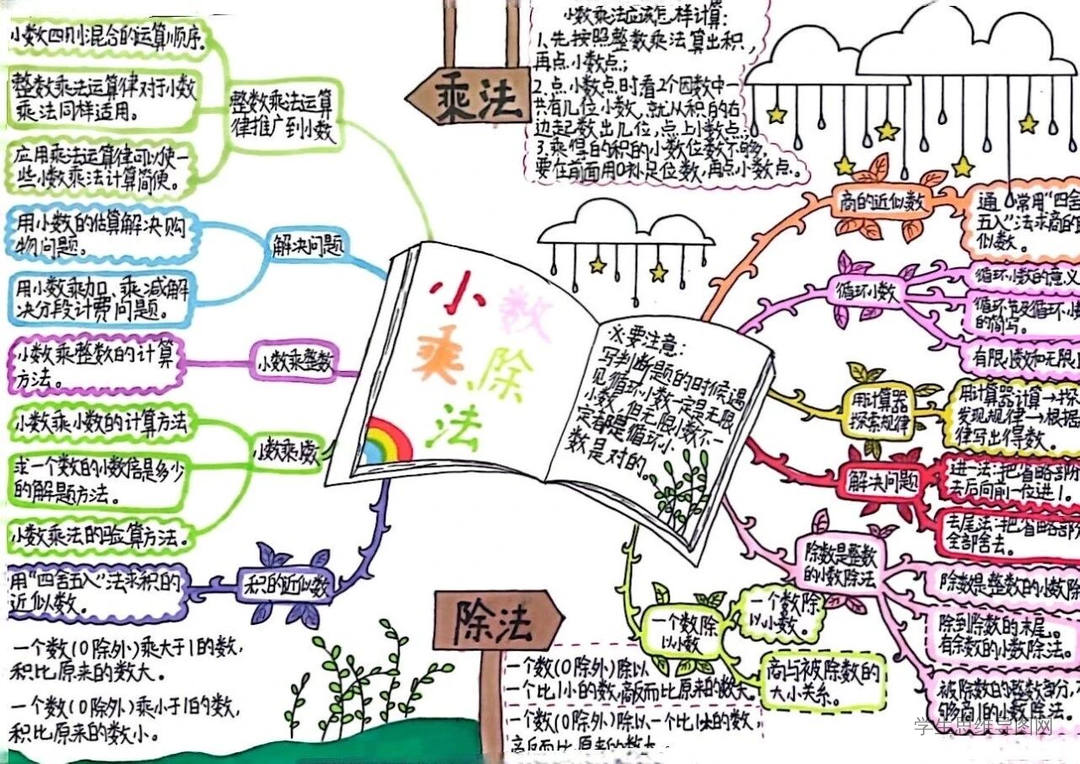 小数四则混合的运算顺序。
整数乘法运算律对于小数
乘法同样适用。
应用乘法运算律可以使一
些小数乘法计算简便。
整数乘法运算
律推广到小数
用小数的估算解决购
物问题。
用小数乘加、乘减解
决分段计费问题。
解决问题
小数乘整数的计算
方法。
小数乘整数
小数乘小数的计算方法
求一个数的小数倍是多少
的解题方法。
小数乘法的验算方法。
小数乘
用“四舍五入”法求积的
近似数。
积的近似数
一个数(0除外)乘大于1的数,
积比原来的数大。
一个数(0除外)乘小于1的数,
积比原来的数小。
乘法
小数乘法应该怎样计算:
1、先按照整数乘法算出积,
再点小数点;
2、点小数点时,看2个因数中一
共有几位小数,就从积的右
边起数出几位,点上小数点;
3、乘得的积的小数位数不够,
要在前面用0补足位数,再点小数点。
小数
乘、除
法
必要注意:
写判断题的时候,遇
见循环小数一定是无限
小数,但无限小数不一
定都是循环小
数是对的。
商的近似数
通常用“四舍
五入”法求商的
似数。
循环小数
循环小数的意义
循环节及循环小
的简写。
用计算器
探索规律
用计算器计算→探
发现规律→根据
律写出得数。
解决问题
进一法:把省略部
去后向前一位进1。
去尾法:把省略部
全部舍去。
除数是整数
的小数除法
除数是整数的小数除
除到除数的末尾。
有余数的小数除法。
被除数的整数部分,
够商1的小数除法。
一个数除
以小数
一个数除
以小数。
商与被除数的
大小关系。
除法
一个数(0除外)除以
一个比1小的数,商反而比原来的数大。
一个数(0除外)除以一个比1大的数,
商反而比原来的数
学生思维导图网